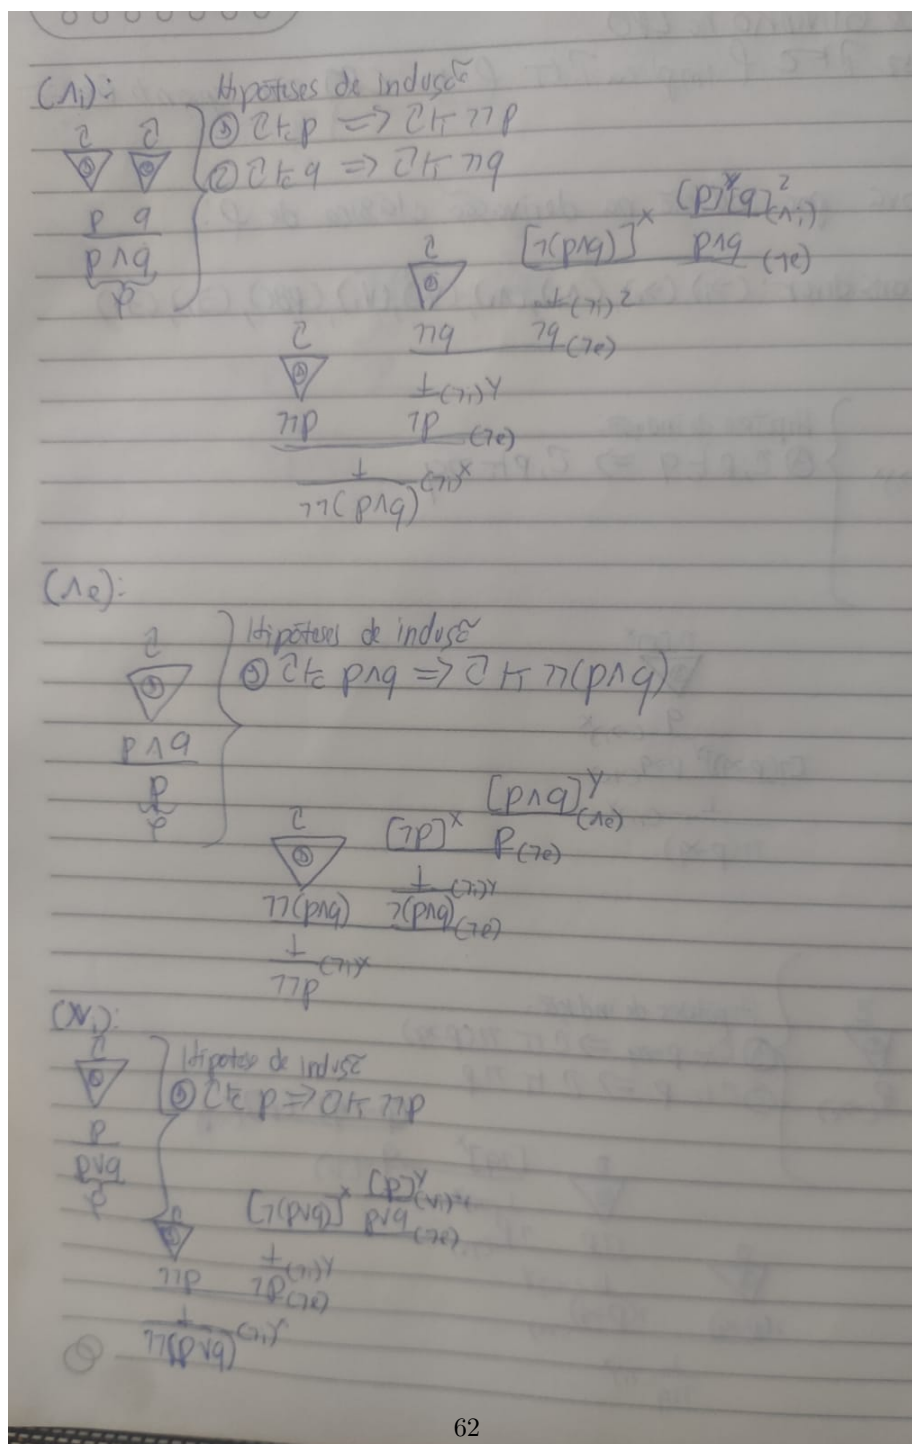 (∧i):
Hipóteses de indução
① Γ ⊢c p => Γ ⊢i ¬¬p
② Γ ⊢c q => Γ ⊢i ¬¬q
Γ Γ
① ②
p q
p∧q
φ
[p]^y [q]^z (∧i)
[¬(p∧q)]^x p∧q (¬e)
Γ
②
⊥ (¬i)^z
¬¬q ¬q (¬e)
Γ
①
⊥ (¬i)^y
¬¬p ¬p (¬e)
⊥ (¬i)^x
¬¬(p∧q)
(∧e):
Hipóteses de indução
① Γ ⊢c p∧q => Γ ⊢i ¬¬(p∧q)
Γ
①
p∧q
p
φ
[p∧q]^y (∧e)
[¬p]^x p (¬e)
Γ
①
⊥ (¬i)^y
¬¬(p∧q) ¬(p∧q) (¬e)
⊥ (¬i)^x
¬¬p
(∨i):
Hipótese de indução
① Γ ⊢c p => Γ ⊢i ¬¬p
Γ
①
p
p∨q
φ
[p]^y (∨i)
[¬(p∨q)]^x p∨q (¬e)
Γ
①
⊥ (¬i)^y
¬¬p ¬p (¬e)
⊥ (¬i)^x
¬¬(p∨q)
62